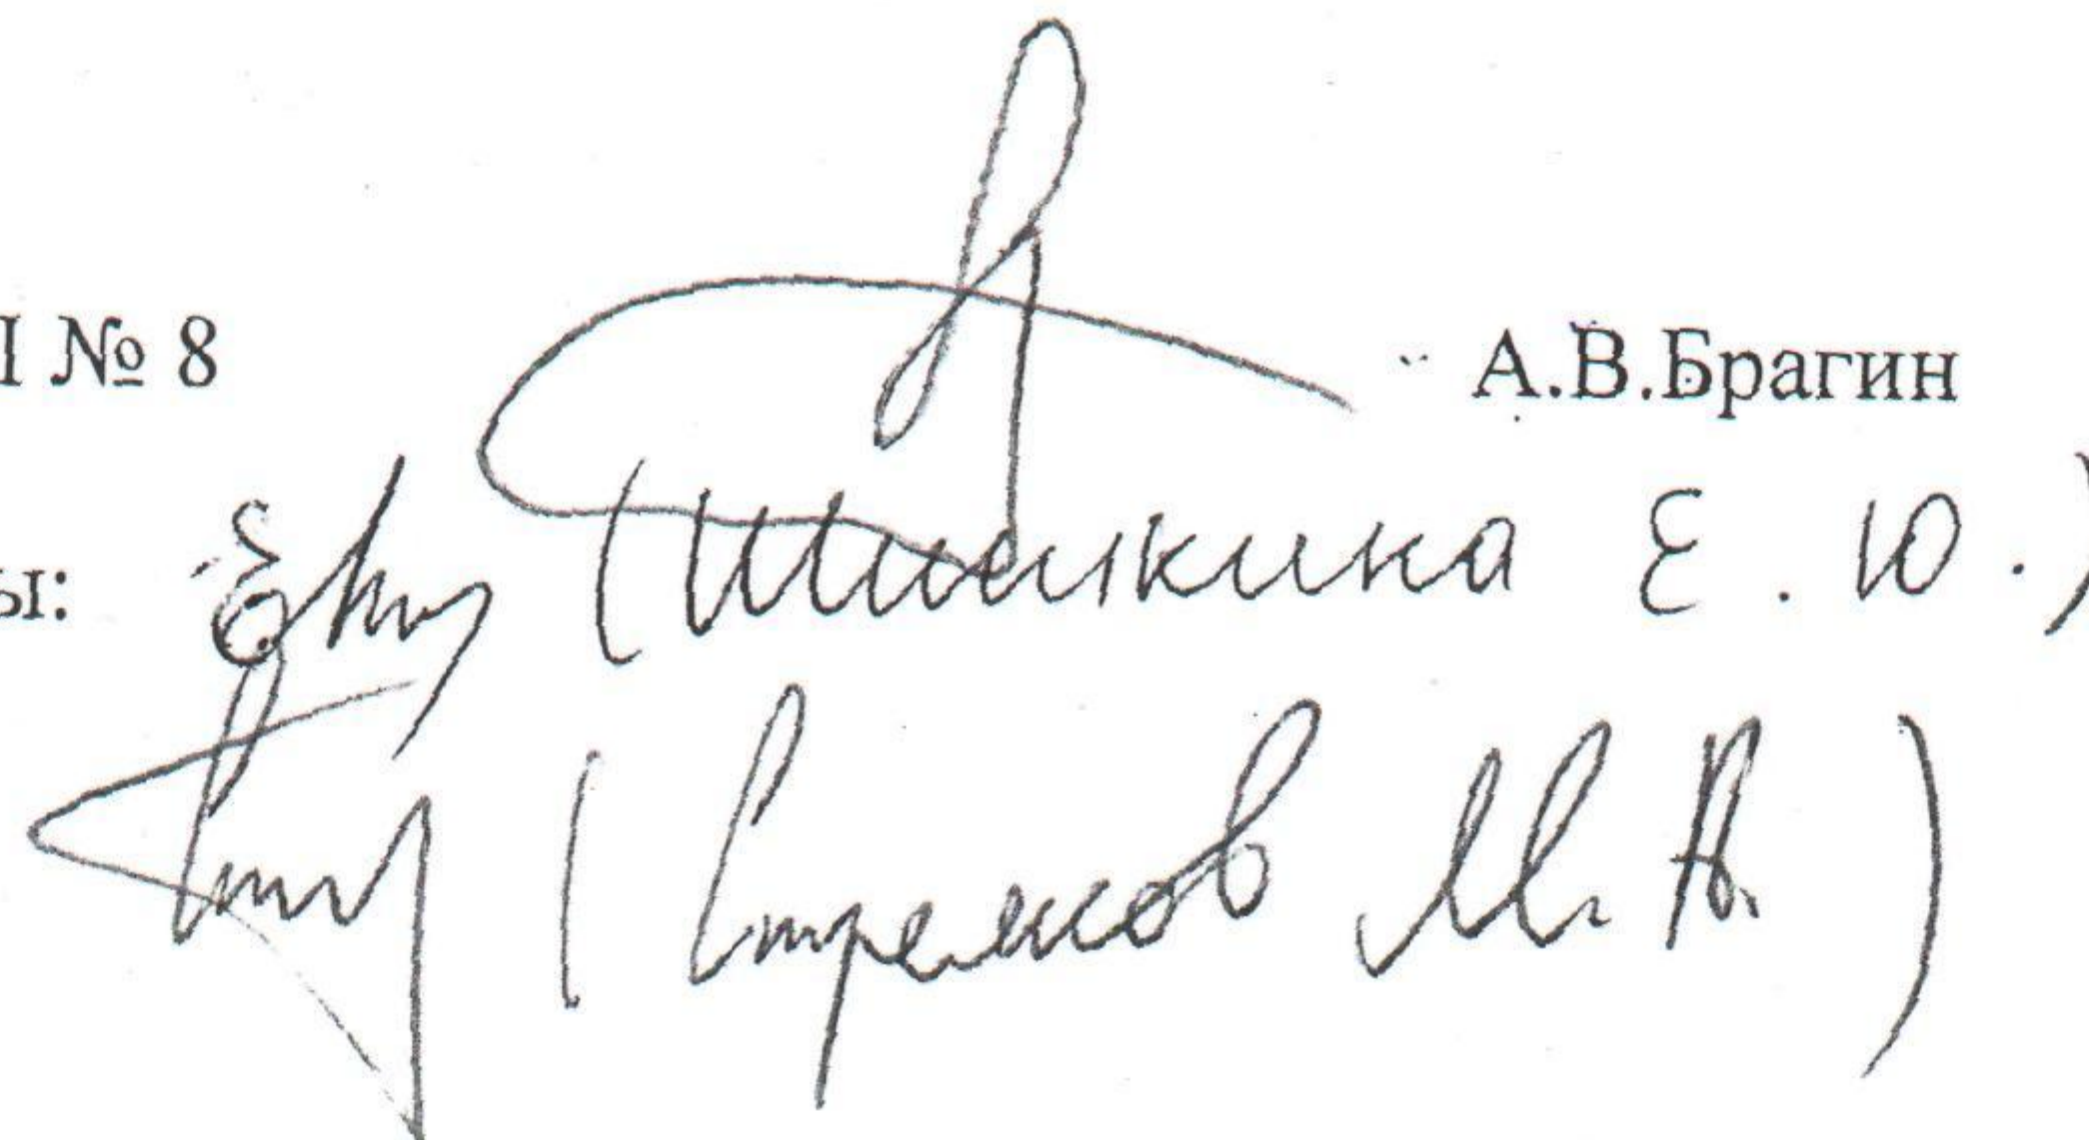 I № 8 А.В.Брагин
ы: (Шишкина Е. Ю.)
(Стрелков М. А.)